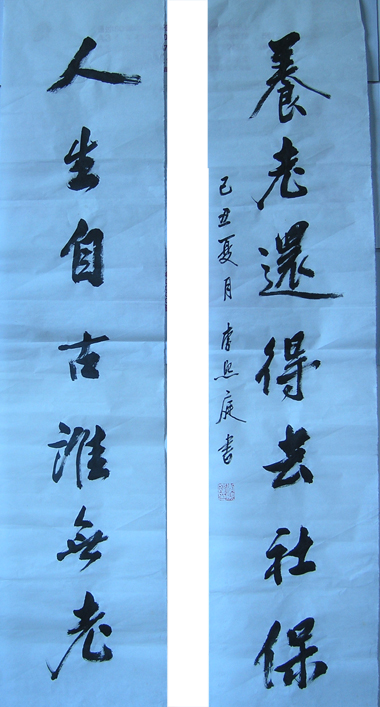 人生自古誰無老
養老還得去社保
己丑夏月 李照庭書